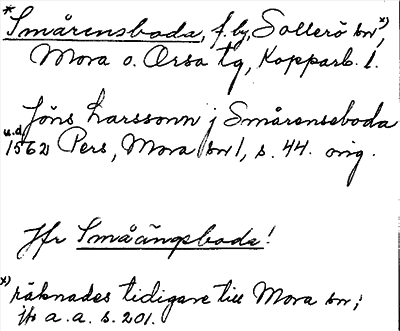 *Smårensboda, f. by, Sollerö sn x),
Mora o. Orsa tg, Kopparb. l.
Jöns Larssonn j Smårenseboda
u.d. 1562 Pers, Mora sn 1, s. 44. orig.
Jfr Småängsboda!
x) räknades tidigare till Mora sn;
jfr a.a. s. 201.